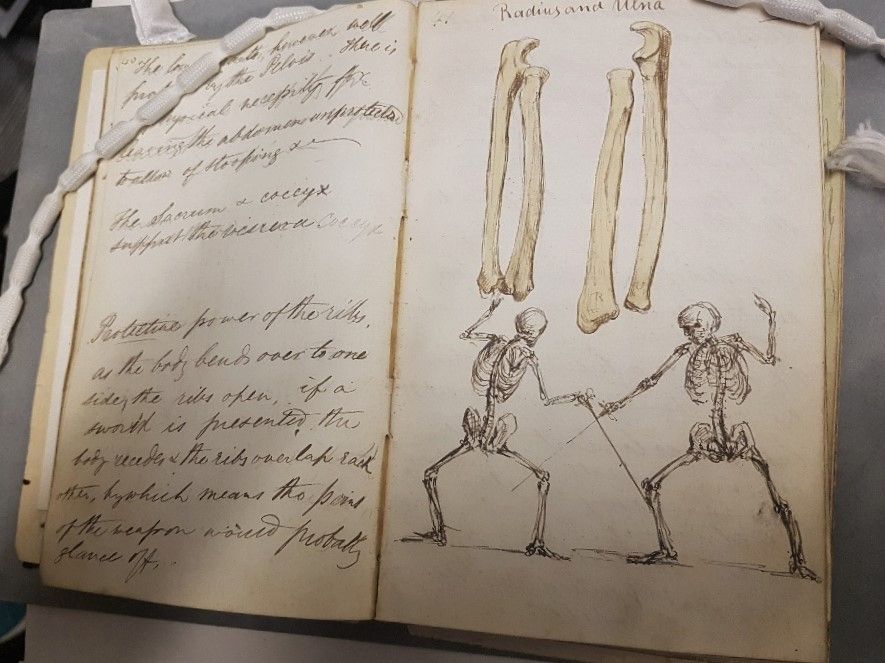 40
The                , however well
          by the Pelvis. There is
          necessity, for
leaving the abdomen unprotected
to allow of stooping &
The Sacrum & coccyx
support the viscera coccyx
Protective power of the ribs,
as the body bends over to one
side, the ribs open, if a
sword is presented, the
body recedes & the ribs overlap each
other, by which means the point
of the weapon would probably
glance off.
41
Radius and Ulna
R